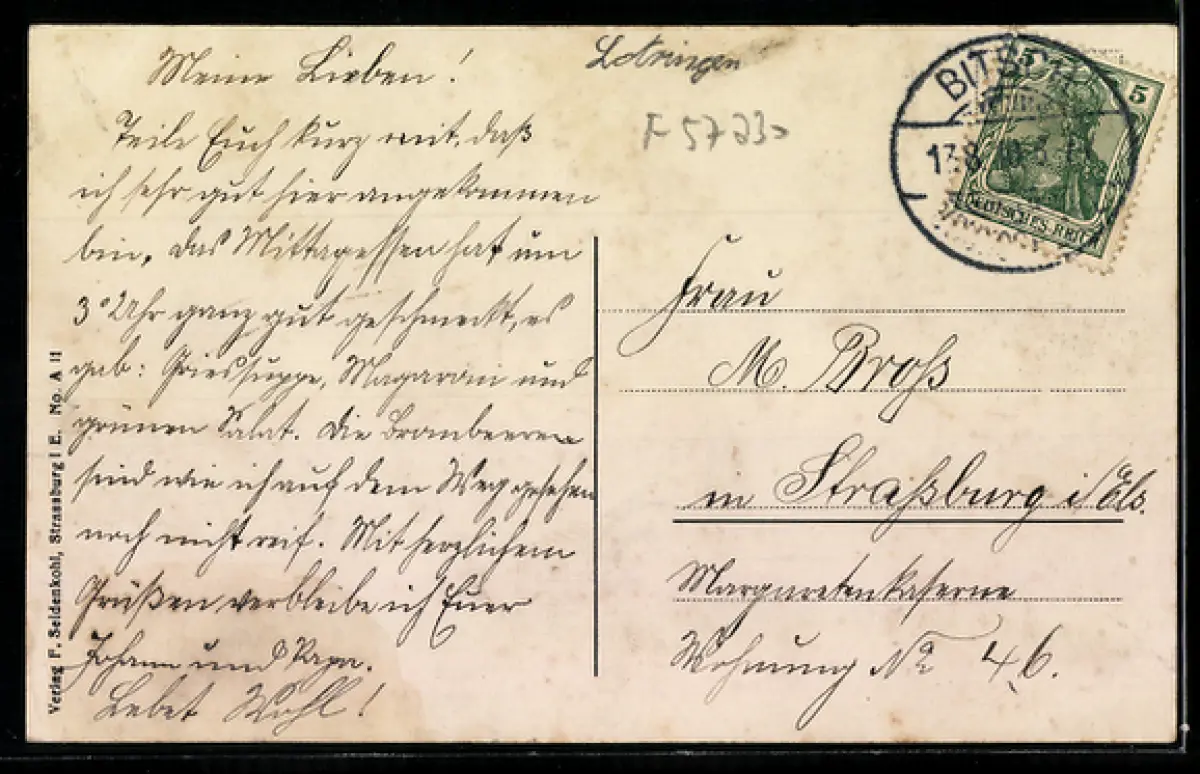 Meine Lieben!
Teile Euch kurz mit, daß
ich sehr gut hier angekommen
bin, das Mittagessen hat um
3° Uhr ganz gut geschmeckt, es
gab: Griessuppe, Magaroni und
grünen Salat. Die Brombeeren
sind wie ich auf dem Weg gesehen
noch nicht reif. Mit herzlichem
Grüßen verbleibe ich Euer
Johann und Papa.
Lebet Wohl!
Verlag F. Seidenkohl, Strassburg I E. No. A 11
Lotringen
F 57230
BITSCH
5 5
DEUTSCHES REICH
Frau
M. Broß
in Straßburg i/Els.
Margaretenkaserne
Wohnung No 46.